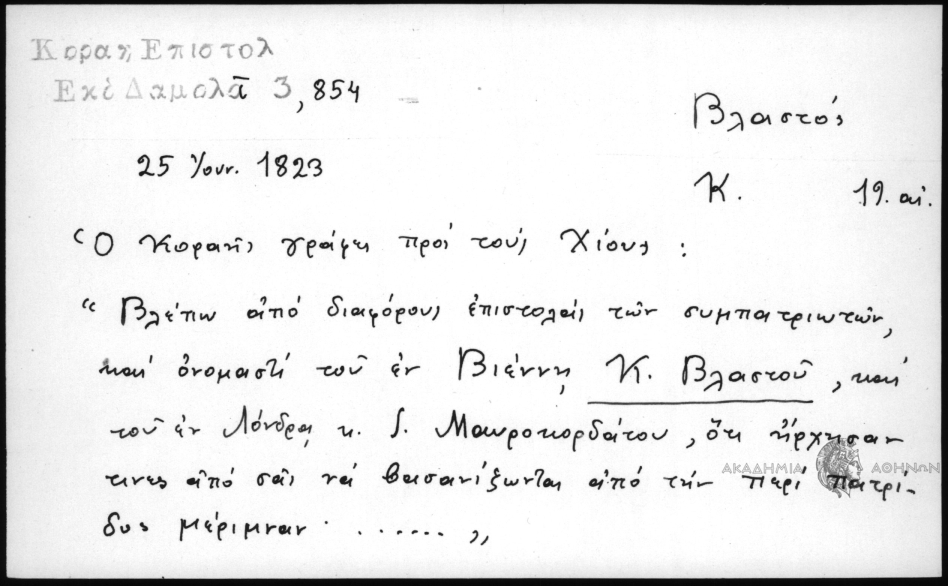 Κοραη Επιστολ
Εκδ Δαμαλᾶ 3, 854
Βλαστός
25 Ἰουν. 1823
Κ. 19. αἰ.
Ὁ Κοραῆς γράφει πρὸς τοὺς Χίους :
“ Βλέπω ἀπό διαφόρους ἐπιστολάς τῶν συμπατριωτῶν,
καί ὀνομαστί τοῦ ἐν Βιέννῃ Κ. Βλαστοῦ, καί
τοῦ ἐν Λόνδρᾳ κ. Μαυροκορδάτου, ὅτι ἤρχησαν
τινες ἀπό σᾶς νά βασανίζωνται ἀπό τήν περί πατρί-
δος μέριμναν . ...... „
ΑΚΑΔΗΜΙΑ ΑΘΗΝΩΝ